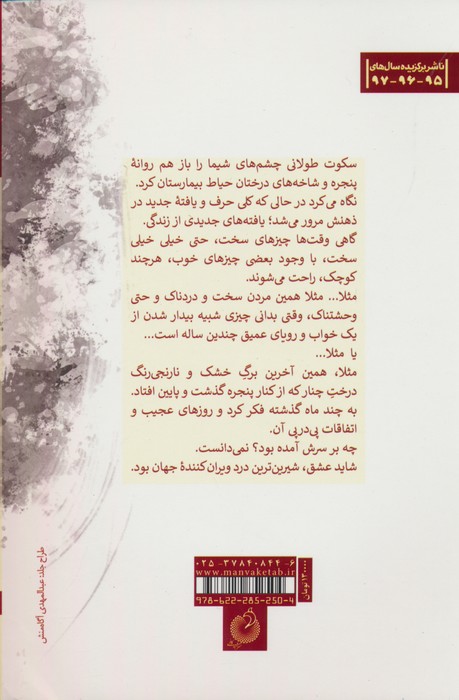 ناشر برگزیده سال‌های
۹۵-۹۶-۹۷
سکوت طولانی چشم‌های شیما را باز هم روانهٔ
پنجره و شاخه‌های درختان حیاط بیمارستان کرد.
نگاه می‌کرد در حالی که کلی حرف و یافتهٔ جدید در
ذهنش مرور می‌شد؛ یافته‌های جدیدی از زندگی.
گاهی وقت‌ها چیزهای سخت، حتی خیلی خیلی
سخت، با وجود بعضی چیزهای خوب، هرچند
کوچک، راحت می‌شوند.
مثلا... مثلا همین مردن سخت و دردناک و حتی
وحشتناک، وقتی بدانی چیزی شبیه بیدار شدن از
یک خواب و رویای عمیق چندین ساله است...
یا مثلا...
مثلا، همین آخرین برگِ خشک و نارنجی‌رنگ
درختِ چنار که از کنار پنجره گذشت و پایین افتاد.
به چند ماه گذشته فکر کرد و روزهای عجیب و
اتفاقات پی‌درپی آن.
چه بر سرش آمده بود؟ نمی‌دانست.
شاید عشق، شیرین‌ترین درد ویران‌کنندهٔ جهان بود.
طراح جلد: عبدالمهدی آگاه‌منش
۰۲۵-۳۷۸۴۰۸۴۴-۶
www.manvaketab.ir
978-622-285-250-4
۱۳۰۰۰۰ تومان